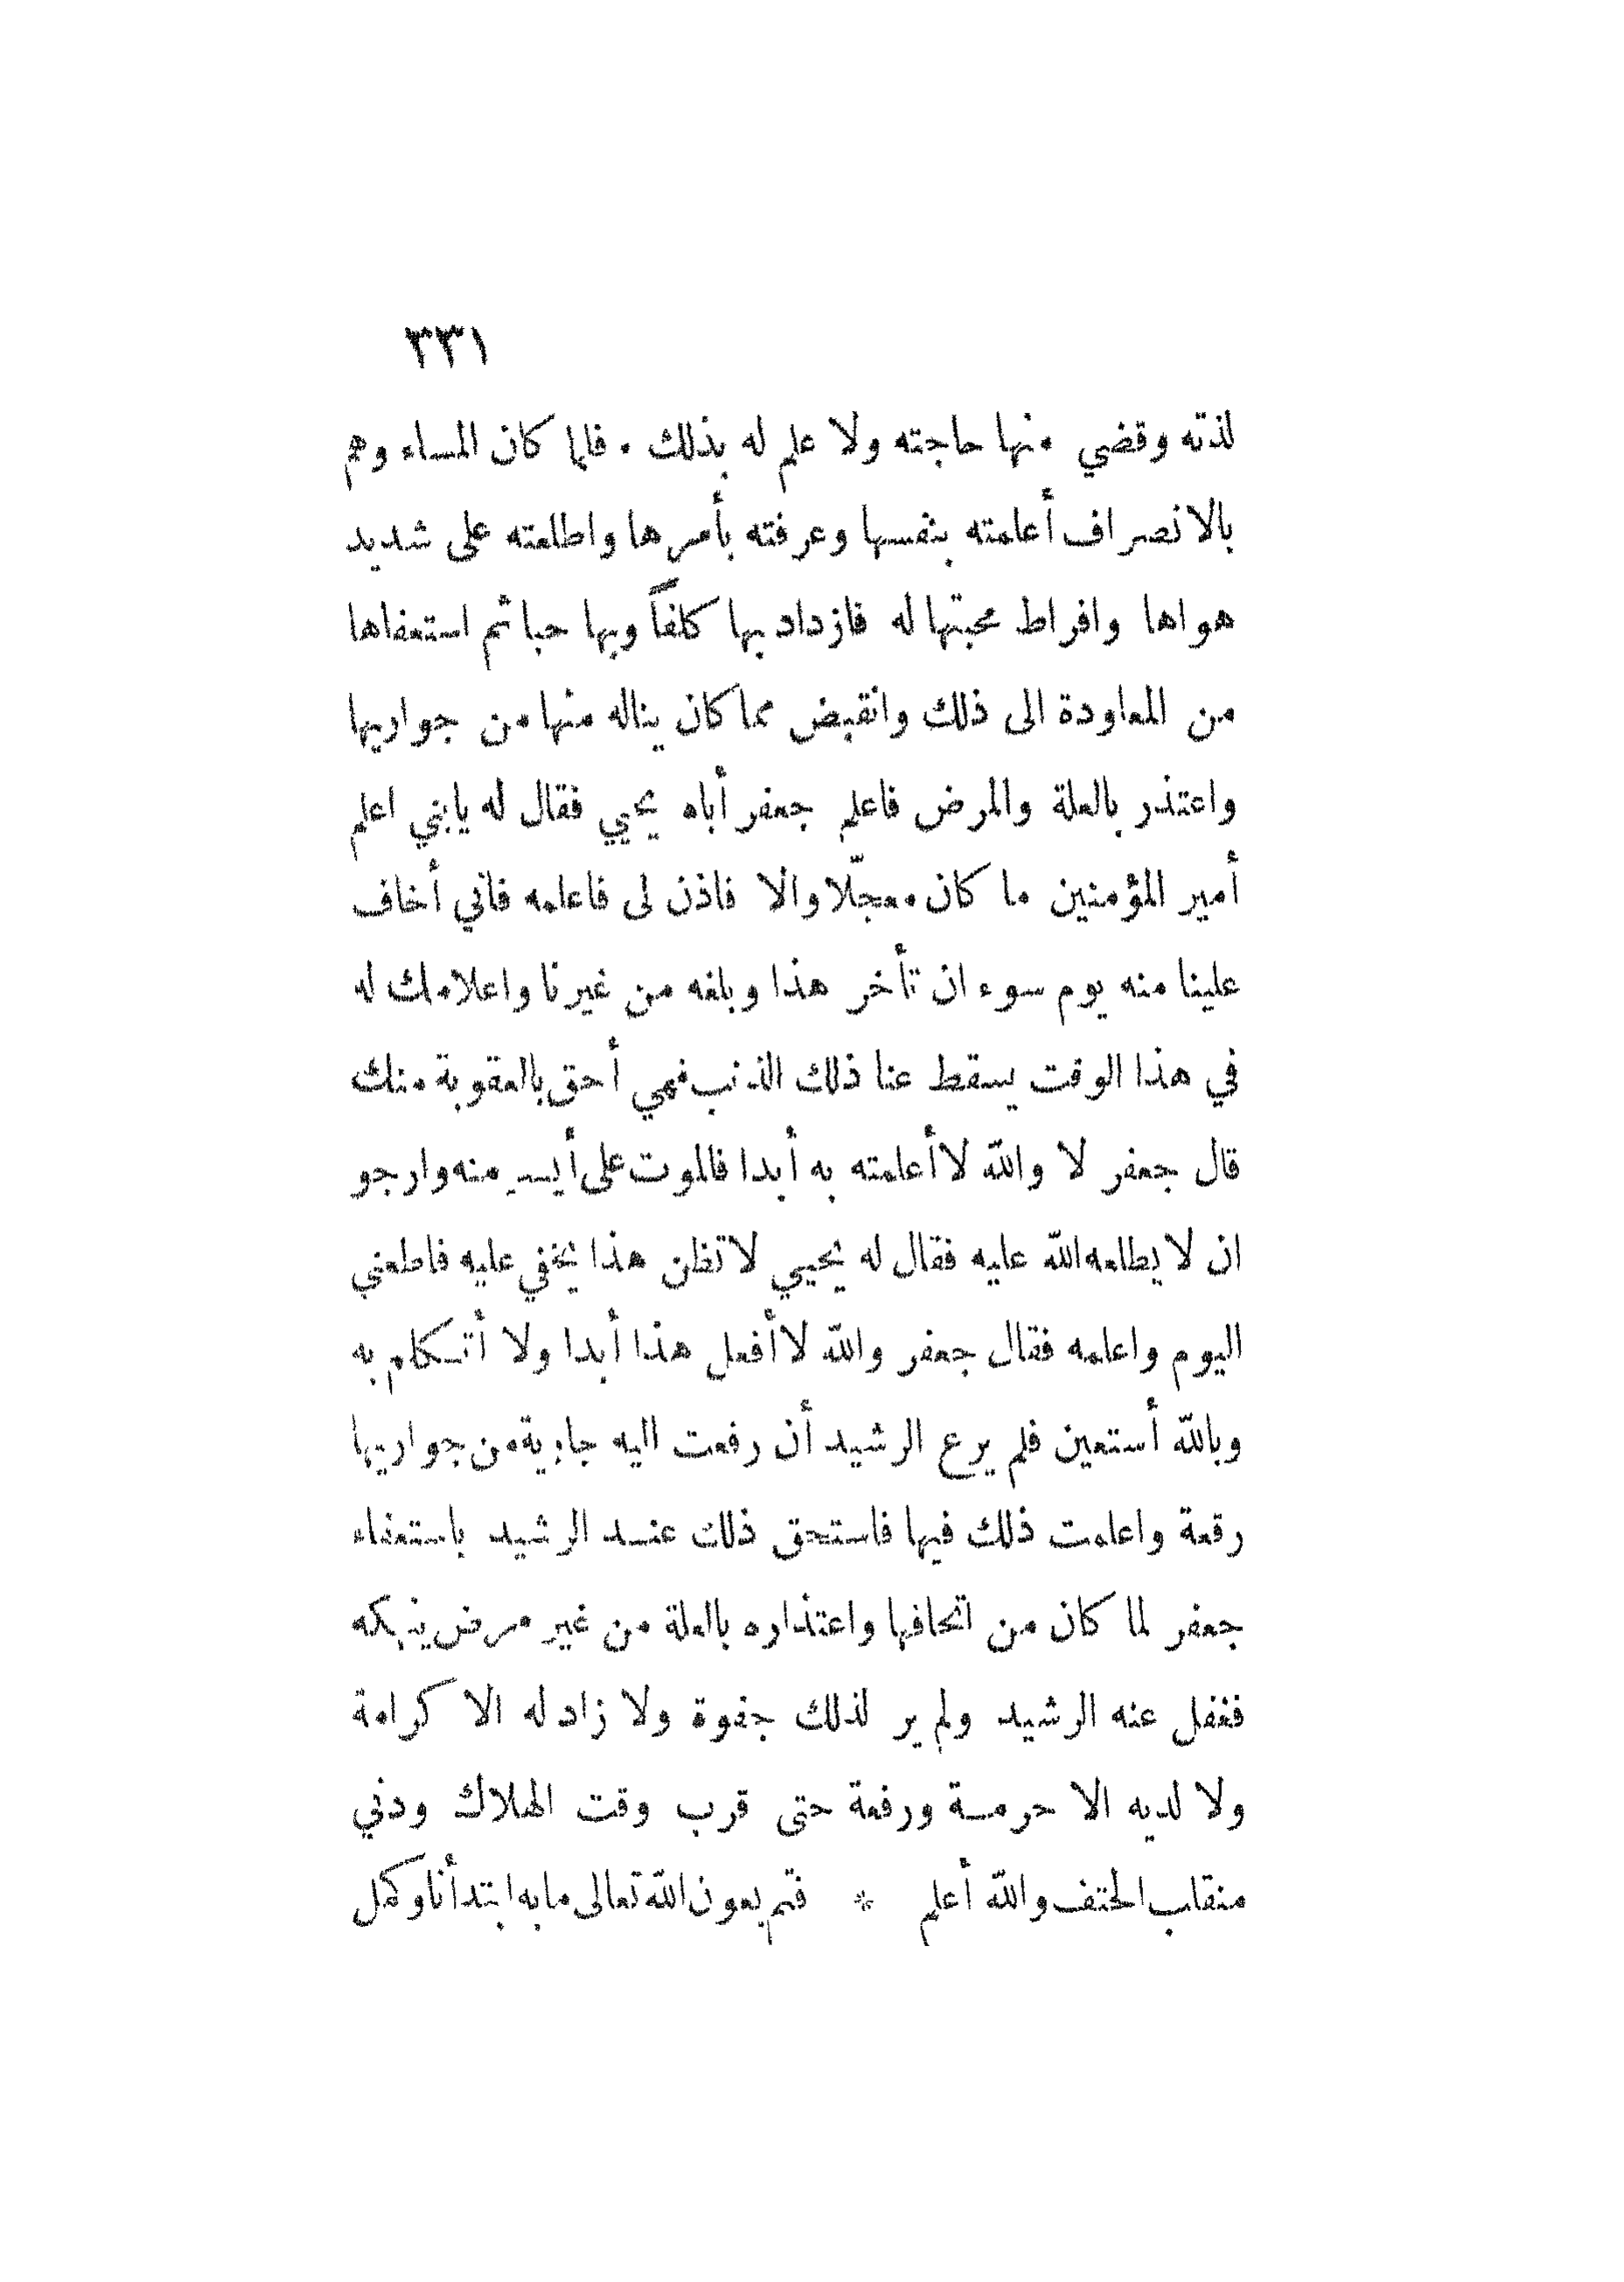 ٣٣١
لذته وقضي منها حاجته ولا علم له بذلك . فلما كان المساء وهم
بالانصراف أعلمته بنفسها وعرفته بأمرها واطلعته على شديد
هواها وافراط محبتها له فازداد بها كلفاً وبها حبا ثم استعفاها
من المعاودة الى ذلك وانقبض مما كان يناله منها من جواريها
واعتذر بالعلة والمرض فاعلم جعفر أباه يحيي فقال له يابني اعلم
أمير المؤمنين ما كان معجلّا والا فاذن لى فاعلمه فاني أخاف
علينا منه يوم سوء ان تأخر هذا وبلغه من غيرنا واعلامك له
في هذا الوقت يسقط عنا ذلك الذنب فهي أحق بالعقوبة منك
قال جعفر لا والله لا أعلمته به أبدا فالموت على أيسر منه وارجو
ان لا يطلعه الله عليه فقال له يحيي لا تظن هذا يخفي عليه فاطعني
اليوم واعلمه فقال جعفر والله لا أفعل هذا أبدا ولا أتكلم به
وبالله أستعين فلم يرع الرشيد أن رفعت اليه جارية من جواريها
رقعة واعلمت ذلك فيها فاستحق ذلك عند الرشيد باستعفاء
جعفر لما كان من اتحافها واعتذاره بالعلة من غير مرض ينهكه
فغفل عنه الرشيد ولم ير لذلك جفوة ولا زاد له الا كرامة
ولا لديه الا حرمة ورفعة حتى قرب وقت الهلاك ودني
منقلب الحتف والله أعلم * فتم بعون الله تعالى ما به ابتدأنا وكمل